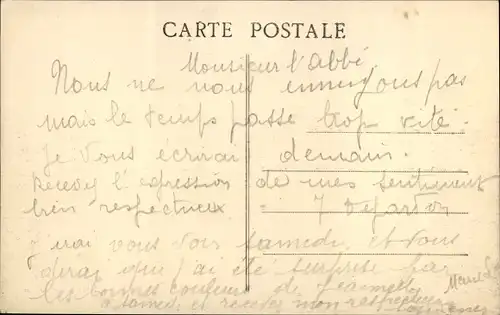 CARTE POSTALE
Monsieur l'abbé
Nous ne nous ennuyons pas
mais le temps passe trop vite.
Je vous écrirai demain.
Recevez l'expression de mes sentiments
bien respectueux
J'irai vous voir samedi et vous
dirai que j'ai été surprise par
les bonnes couleurs de
et recevez mon respectueux